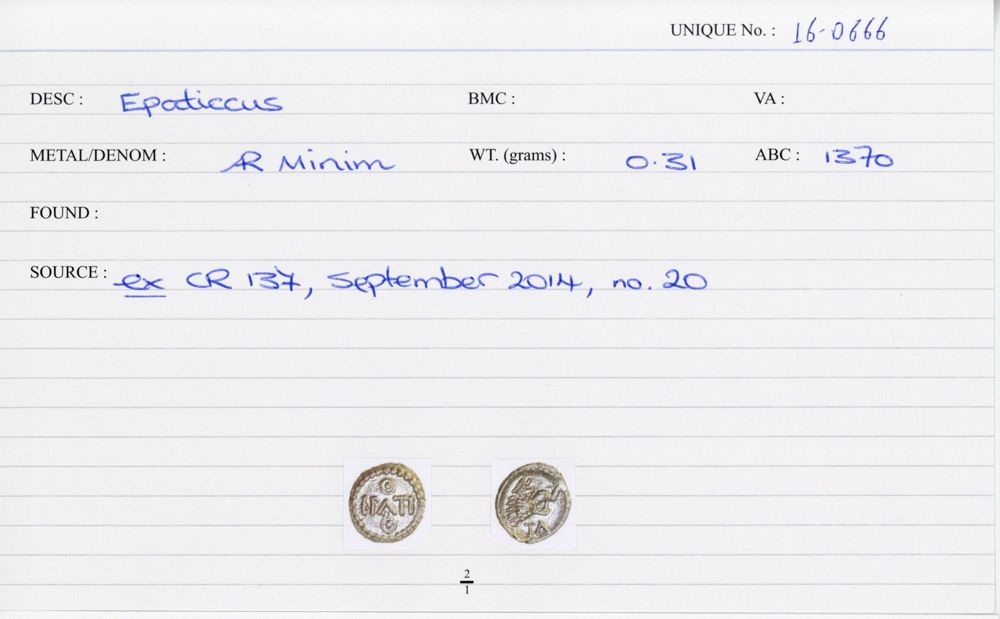 UNIQUE No. : 16-0666
DESC : Epaticcus BMC : VA :
METAL/DENOM : AR Minim WT. (grams) : 0.31 ABC : 1370
FOUND :
SOURCE : ex CR 137, September 2014, no. 20
EPATI
TA
2
1